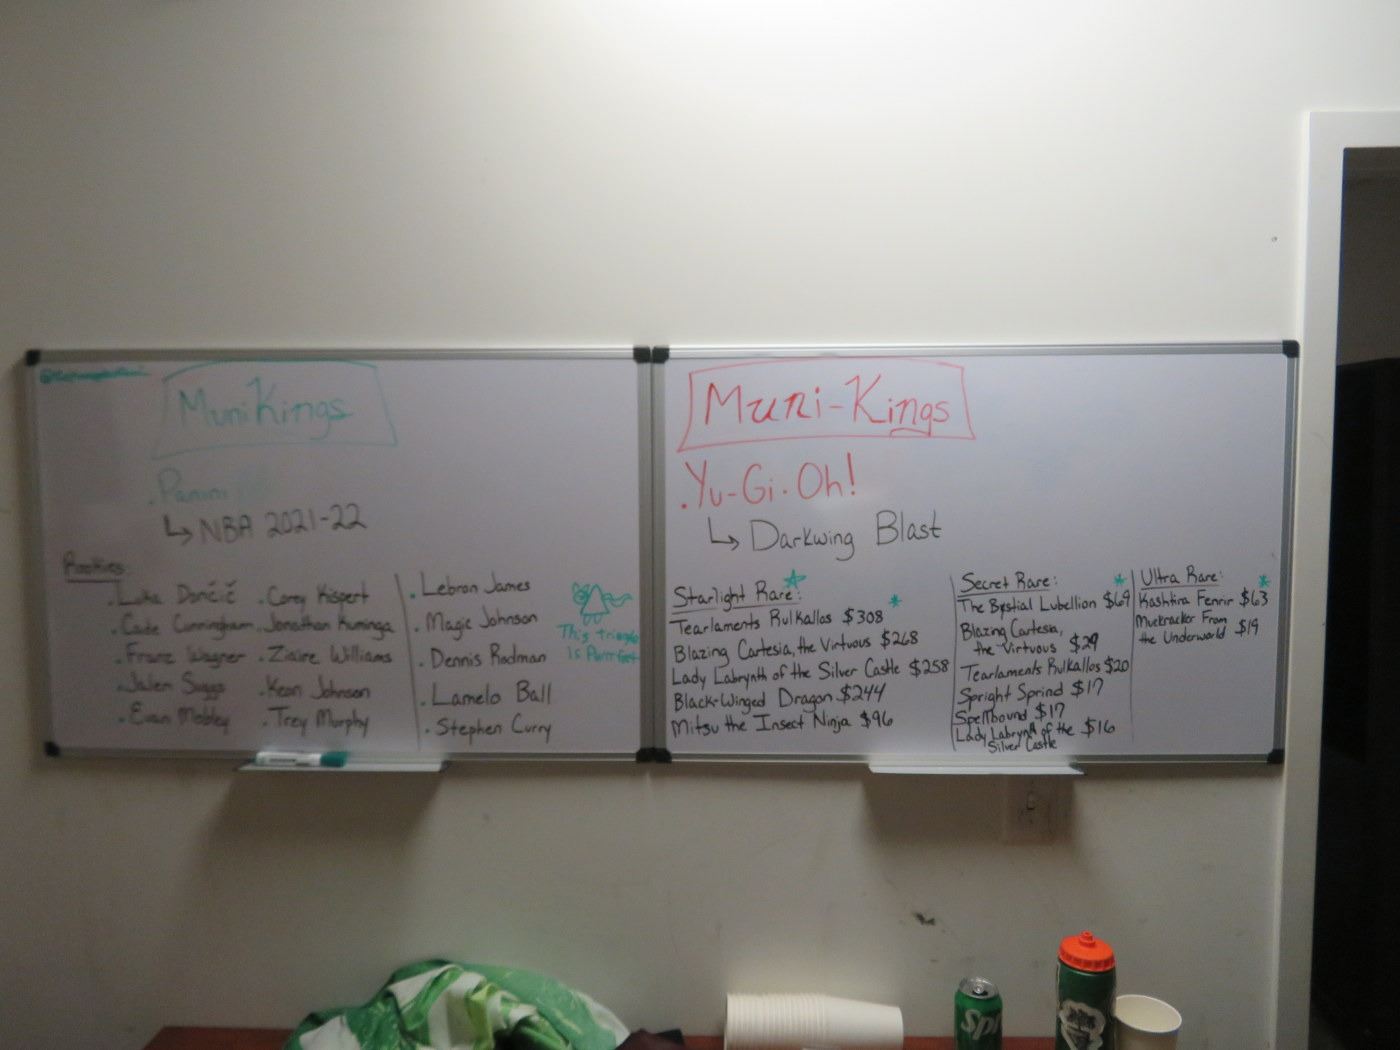 MuniKings
. Panini
↳ NBA 2021-22
Rookies:
. Luka Dončič
. Cade Cunningham
. Franz Wagner
. Jalen Suggs
. Evan Mobley
. Corey Kispert
. Jonathan Kuminga
. Ziaire Williams
. Keon Johnson
. Trey Murphy
. Lebron James
. Magic Johnson
. Dennis Rodman
. Lamelo Ball
. Stephen Curry
This triangle
is Purrfect
Muni-Kings
. Yu-Gi-Oh!
↳ Darkwing Blast
Starlight Rare:
Tearlaments Rulkallos $308
Blazing Cartesia, the Virtuous $268
Lady Labrynth of the Silver Castle $258
Black-Winged Dragon $244
Mitsu the Insect Ninja $96
Secret Rare:
The Bystial Lubellion $69
Blazing Cartesia,
the Virtuous $29
Tearlaments Rulkallos $20
Spright Sprind $17
Spellbound $17
Lady Labrynth of the $16
Silver Castle
Ultra Rare:
Kashtira Fenrir $63
Muckracker From
the Underworld $19
Spr